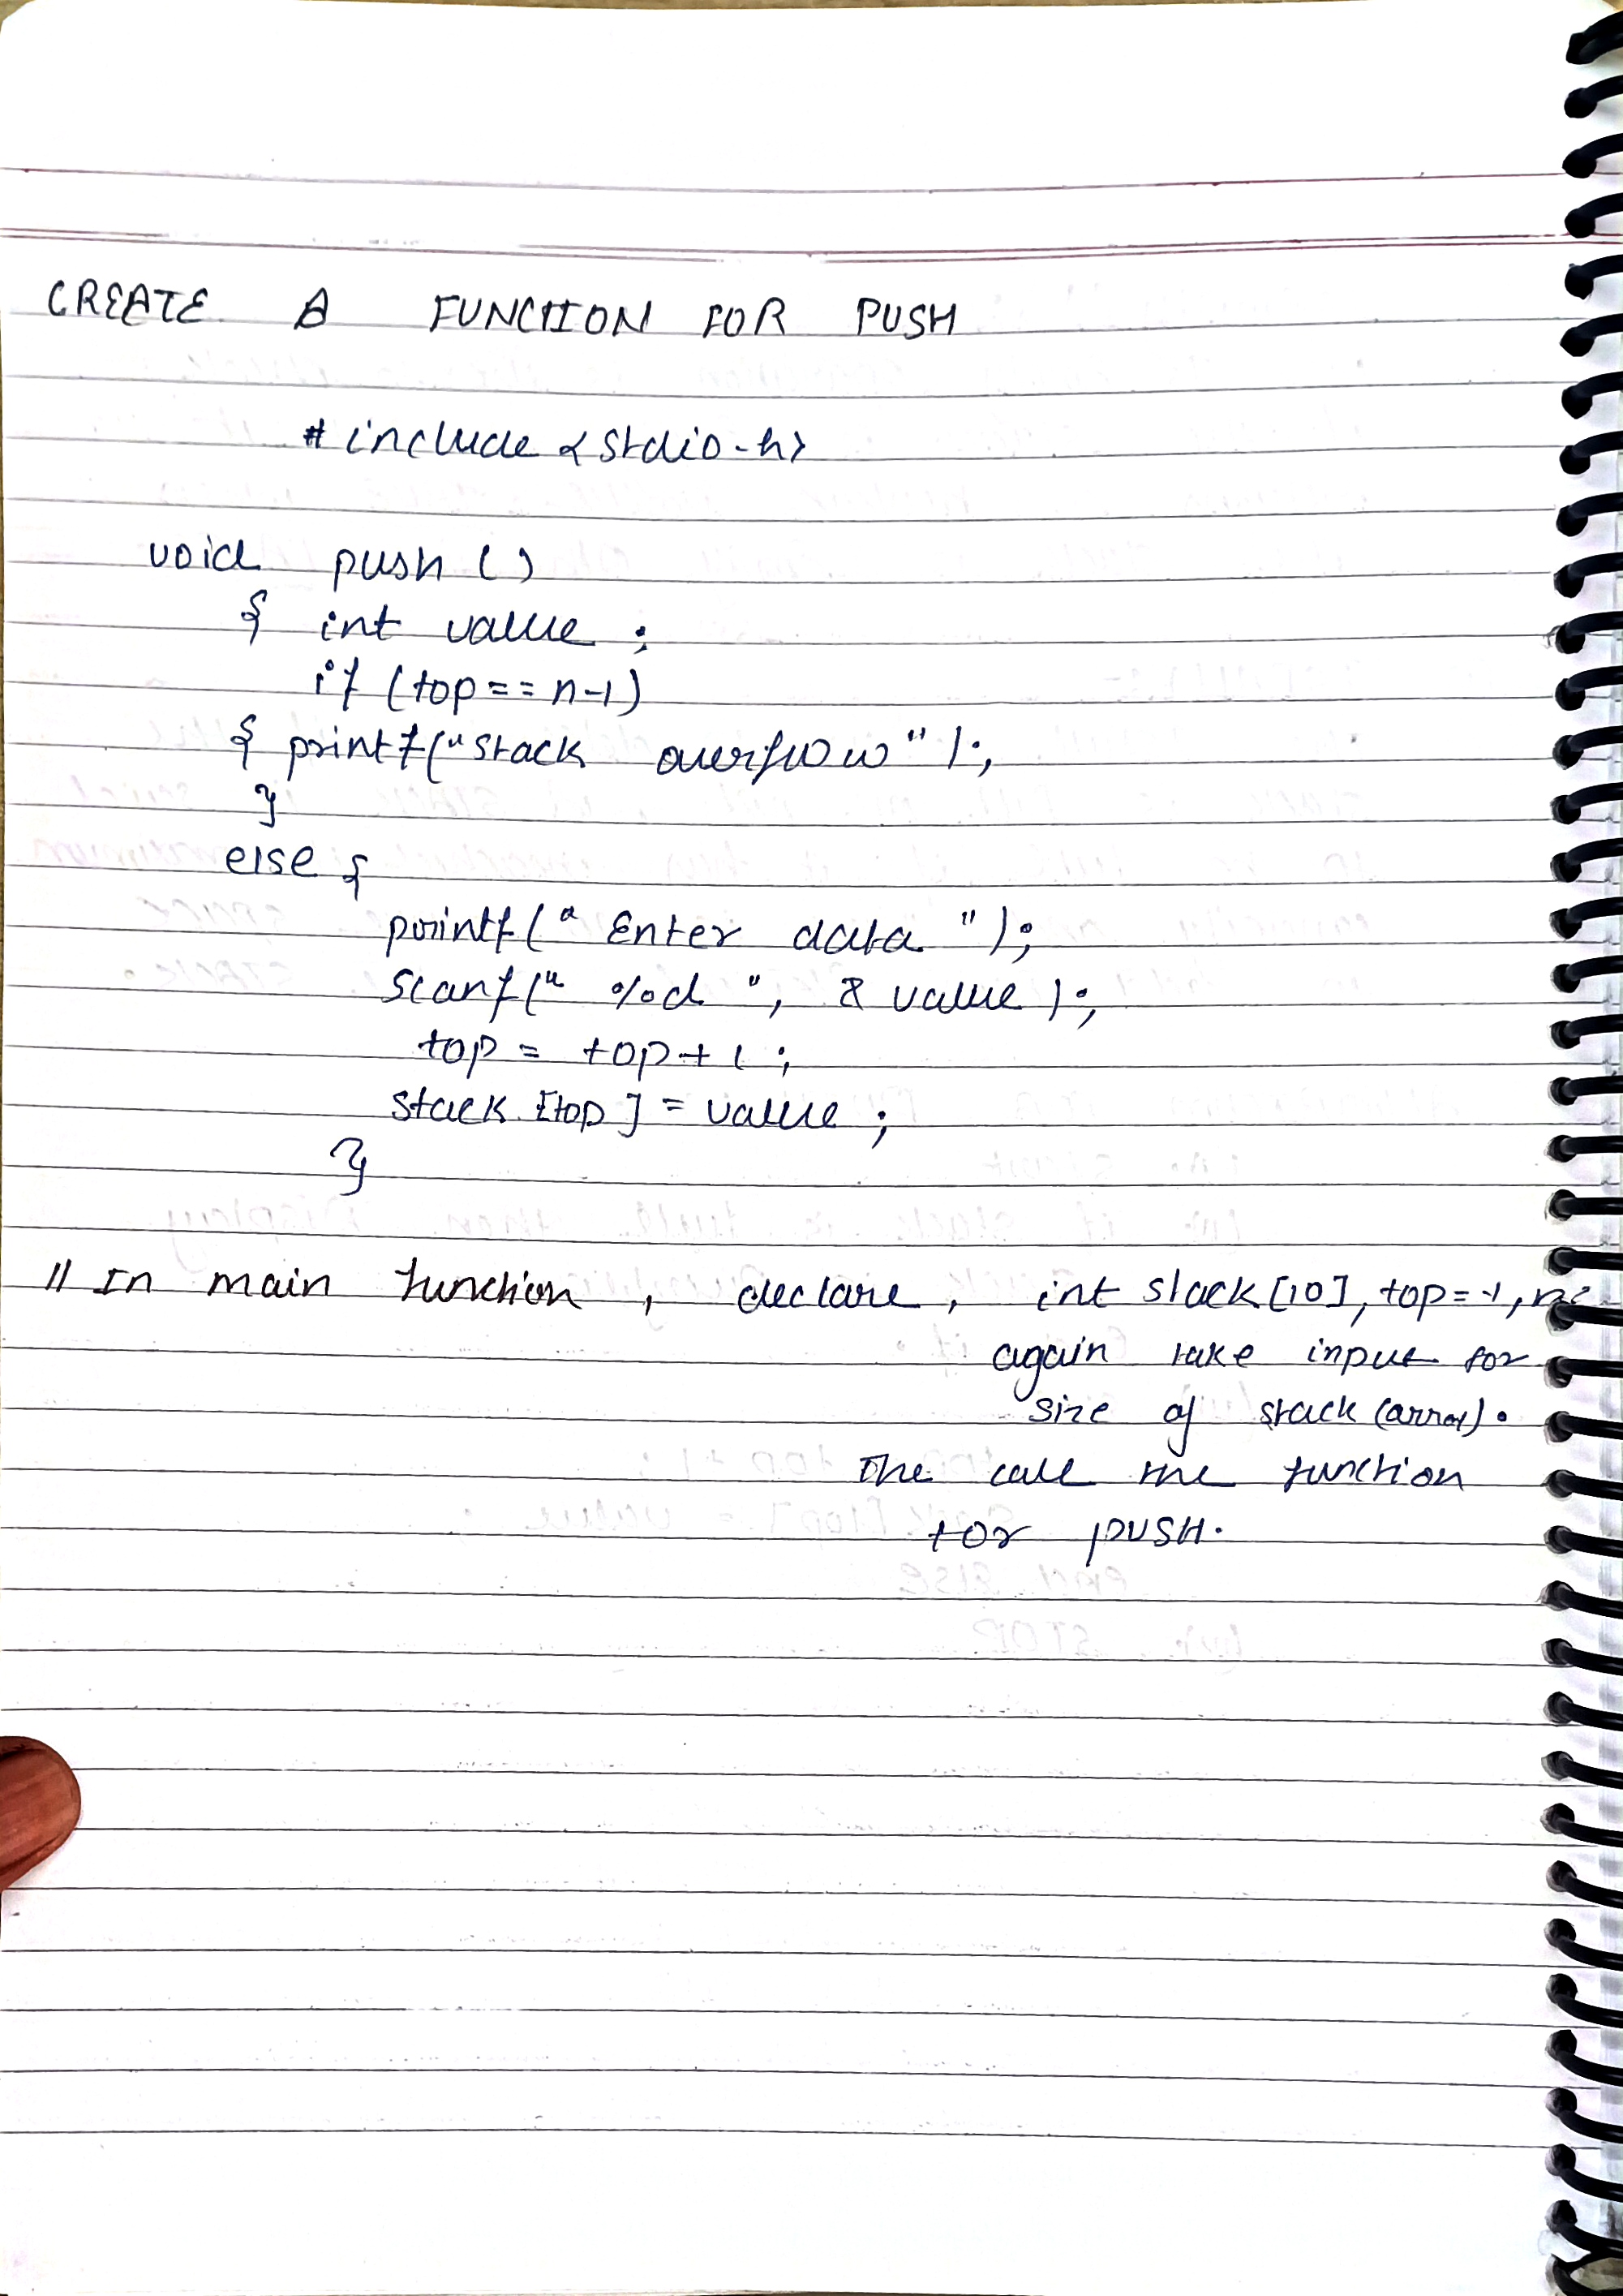 CREATE A FUNCTION FOR PUSH
# include <stdio.h>
void push ()
{ int value ;
if (top == n-1)
{ printf("stack overflow");
}
else {
printf(" Enter data ");
scanf(" %d ", & value );
top = top+1 ;
stack [top] = value ;
}
// In main function , declare , int stack[10], top=-1, n;
again take input for
size of stack (array).
The call the function
for PUSH.